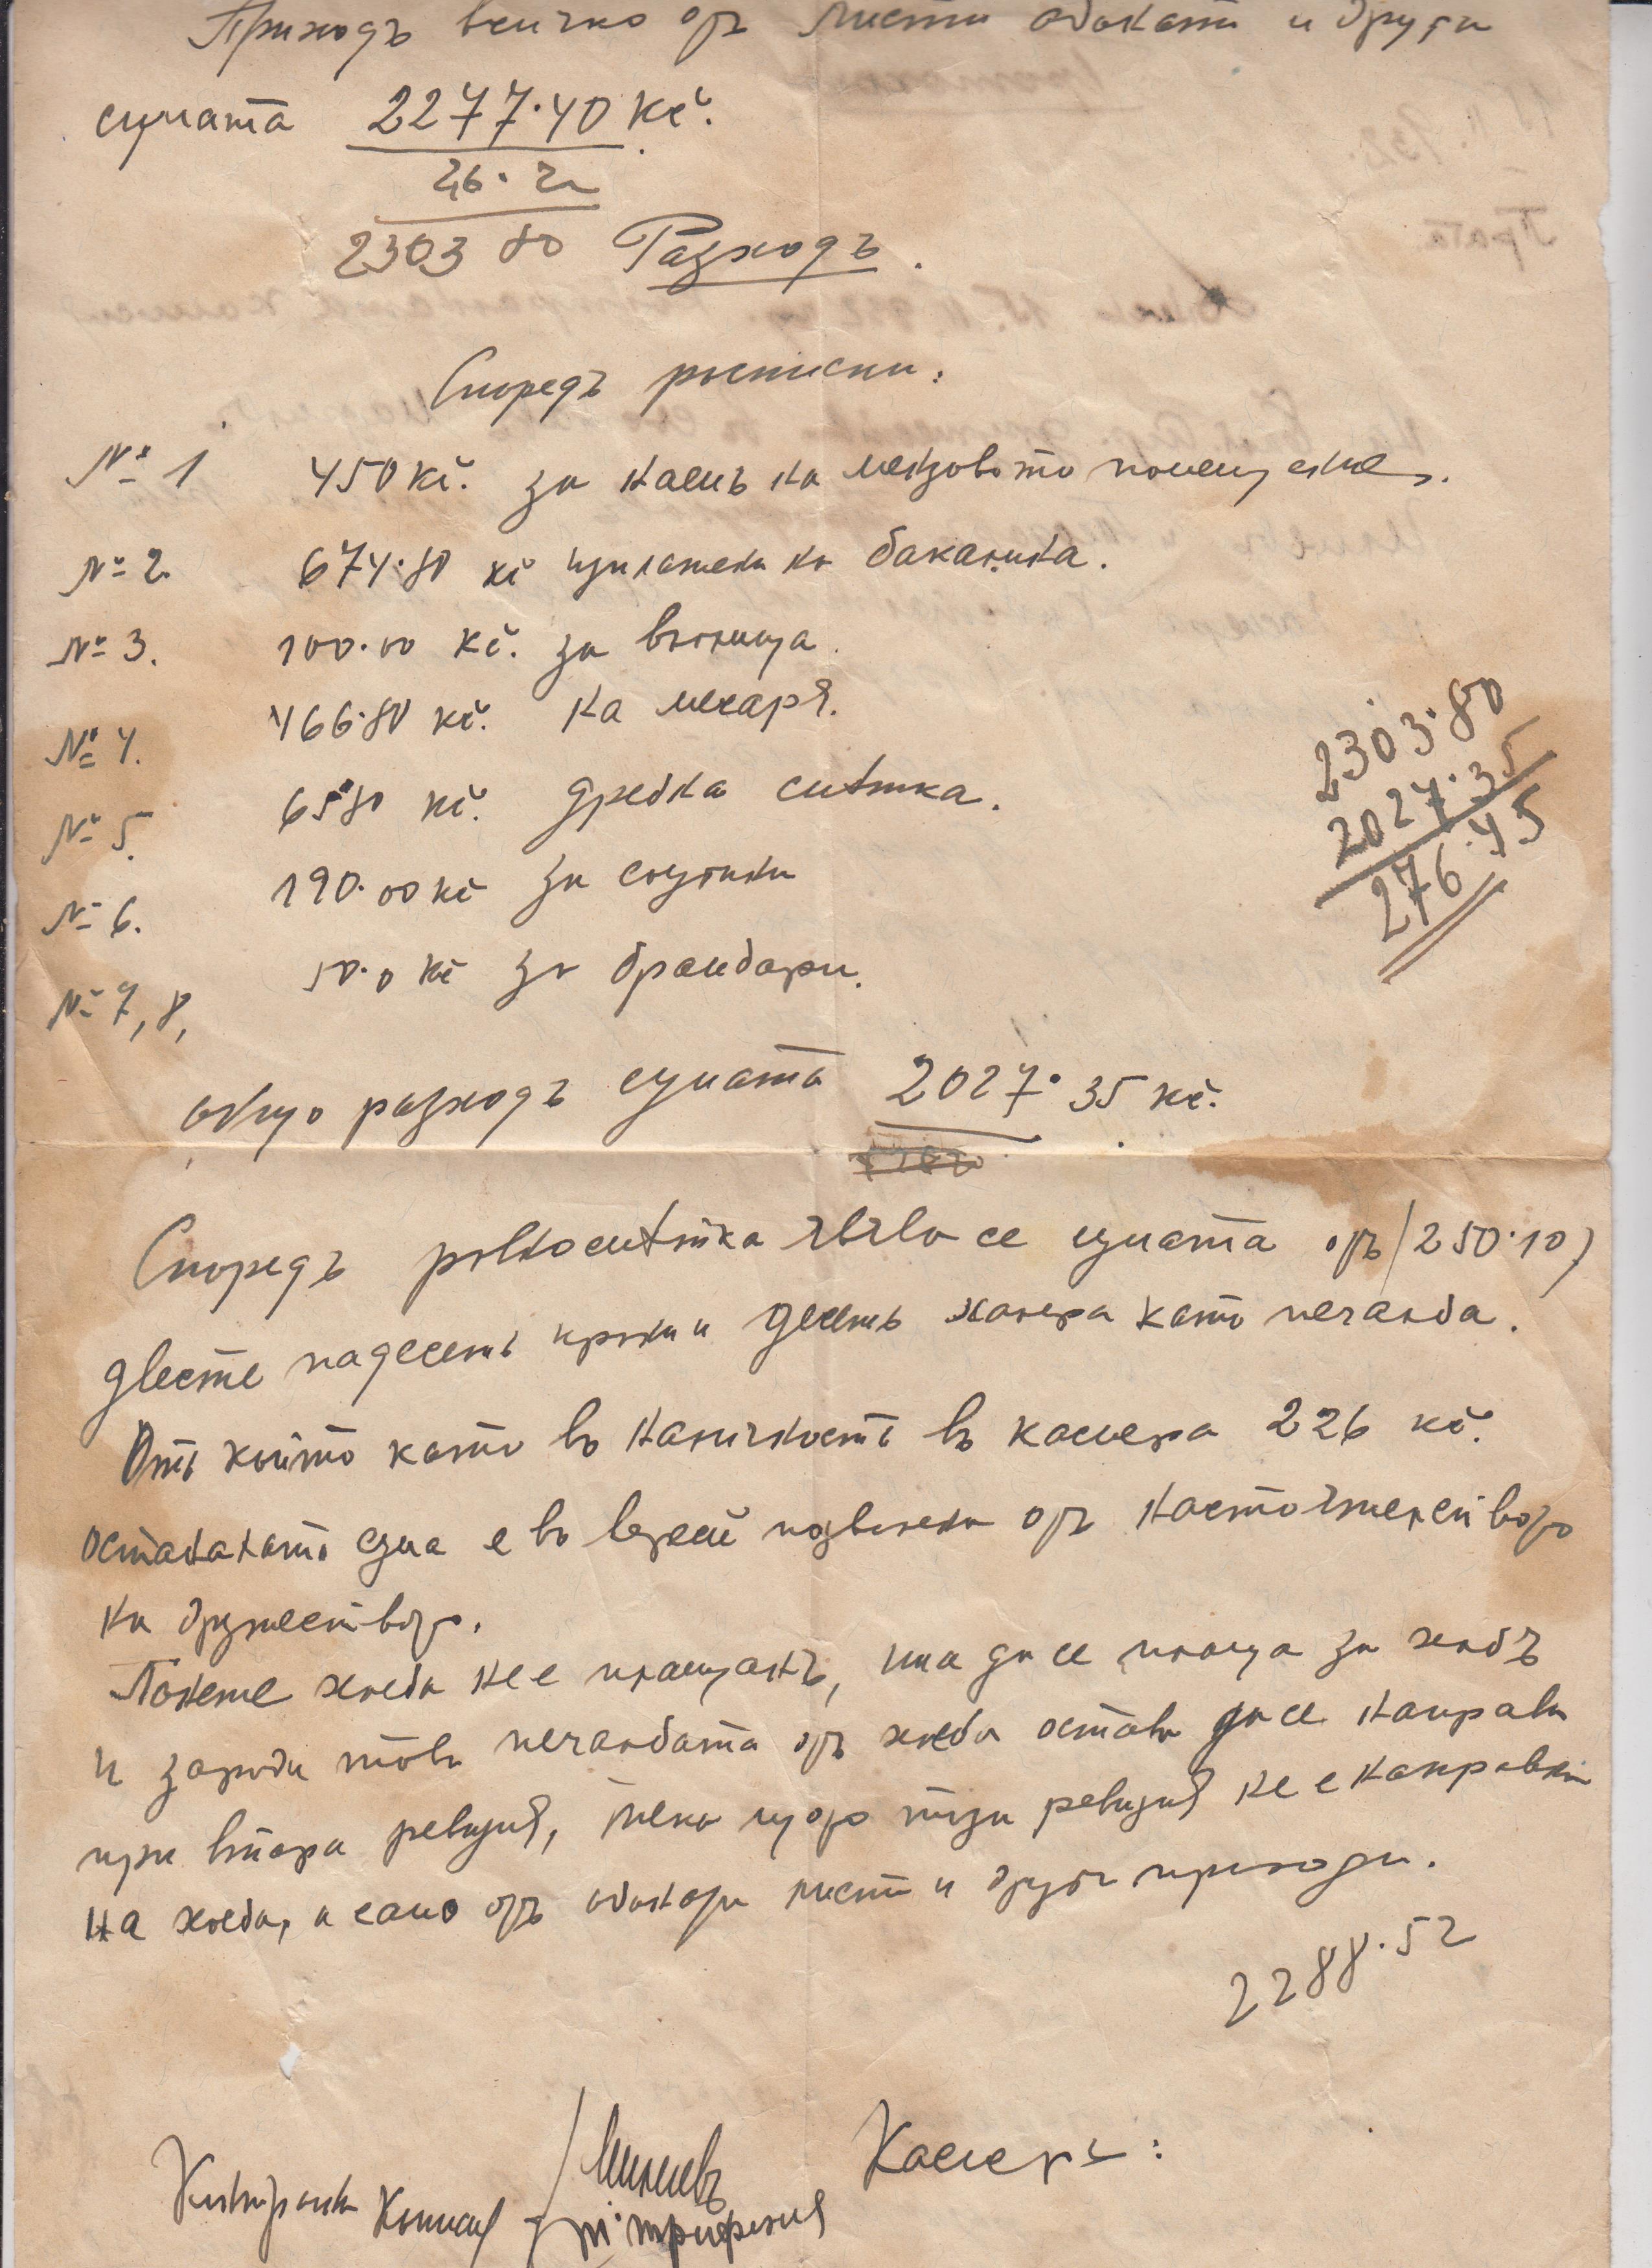 Приходъ всичко отъ листи абонати и други
сумата 2277·40 Kč.
26·
2303 80 Разходъ.
Споредъ росписки:
№ 1 450 Kč. за наемъ на мензовото помещение.
№ 2. 674·80 Kč изплатени на бакалина.
№ 3. 100·00 Kč. за въглища.
№ 4. 466·80 Kč. на мекаря.
№ 5. 65·80 Kč. дребна смѣтка.
№ 6. 190·00 Kč за
№ 7, 8, 50·0 Kč за
2303·80
2027·35
276·45
общо разходъ сумата 2027·35 Kč.
Споредъ смѣтка явява се сумата отъ /250·10/
двесте падесеть крони и десеть халера като печалба.
Отъ който като въ наличность въ касиера 226 Kč.
останалата сума е въ отъ настоятелството
на дружеството.
Понеже хлеба не е плащанъ, има да се плаща за хлебъ
и заради това печалбата отъ хлеба остава да се направи
при втора ревизия, тъка щото тази ревизия не е направена
на хлеба, а само отъ абонати листи и други приходи.
2288·52
Контролна Комисия Минчевъ Касиеръ: